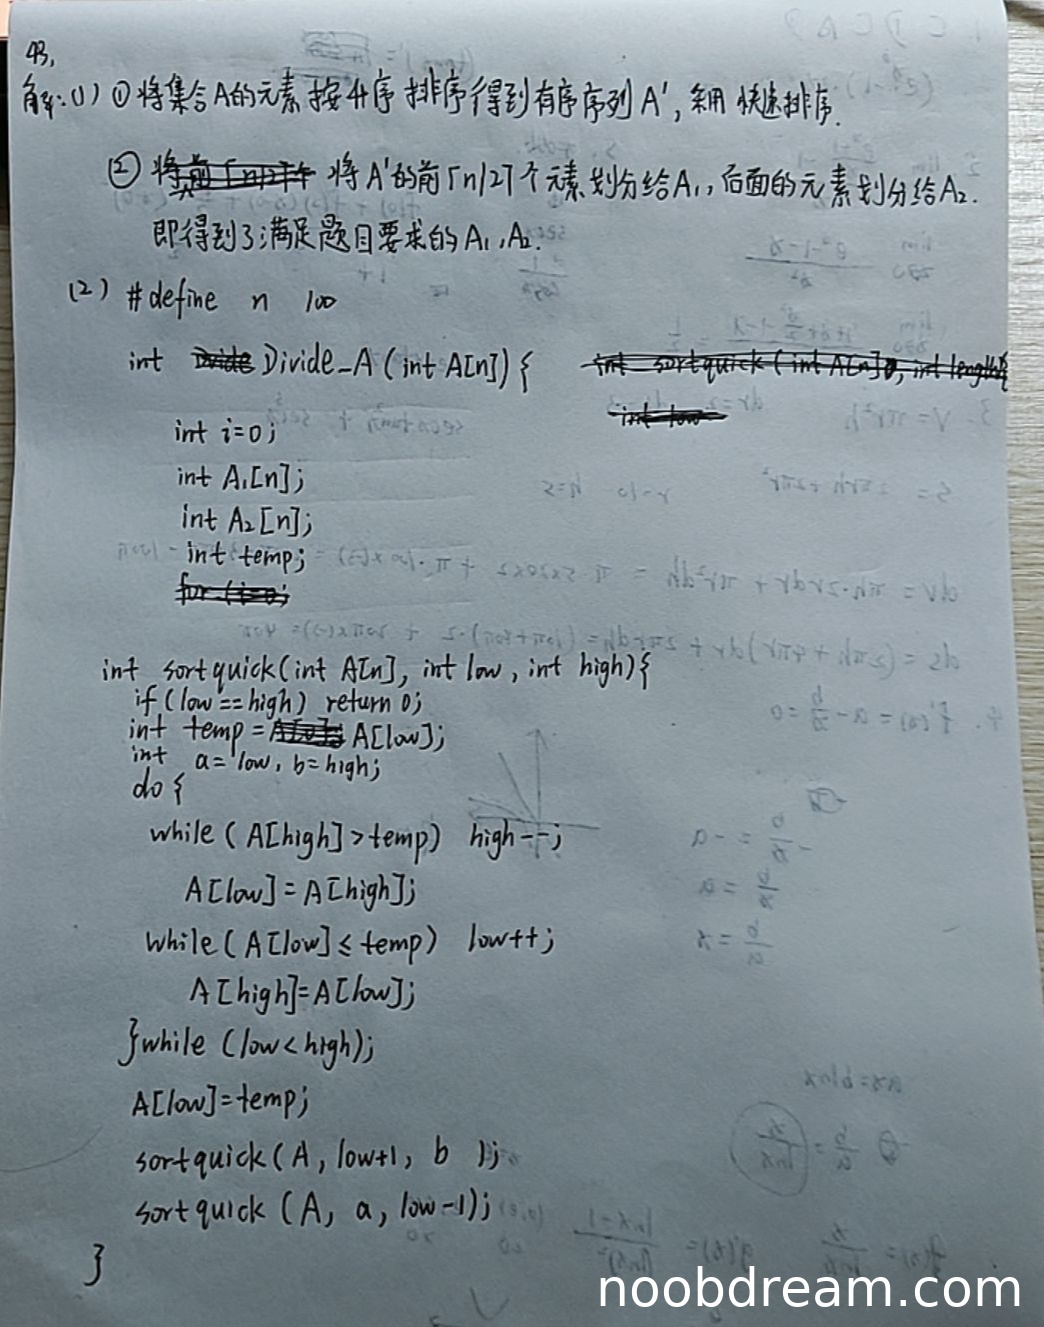 43,
解:(1) ① 将集合A的元素按升序排序得到有序序列A',采用快速排序.
② 将A'的前⌈n/2⌉个元素划分给A₁,后面的元素划分给A₂.
即得到了满足题目要求的A₁,A₂.
(2) #define n 100
int Divide_A(int A[n]){
int i=0;
int A₁[n];
int A₂[n];
int temp;
int sortquick(int A[n], int low, int high){
if(low==high) return 0;
int temp= A[low];
int a=low, b=high;
do{
while(A[high]>temp) high--;
A[low]=A[high];
while(A[low]≤temp) low++;
A[high]=A[low];
}while(low<high);
A[low]=temp;
sortquick(A, low+1, b );
sortquick(A, a, low-1);
}
noobdream.com